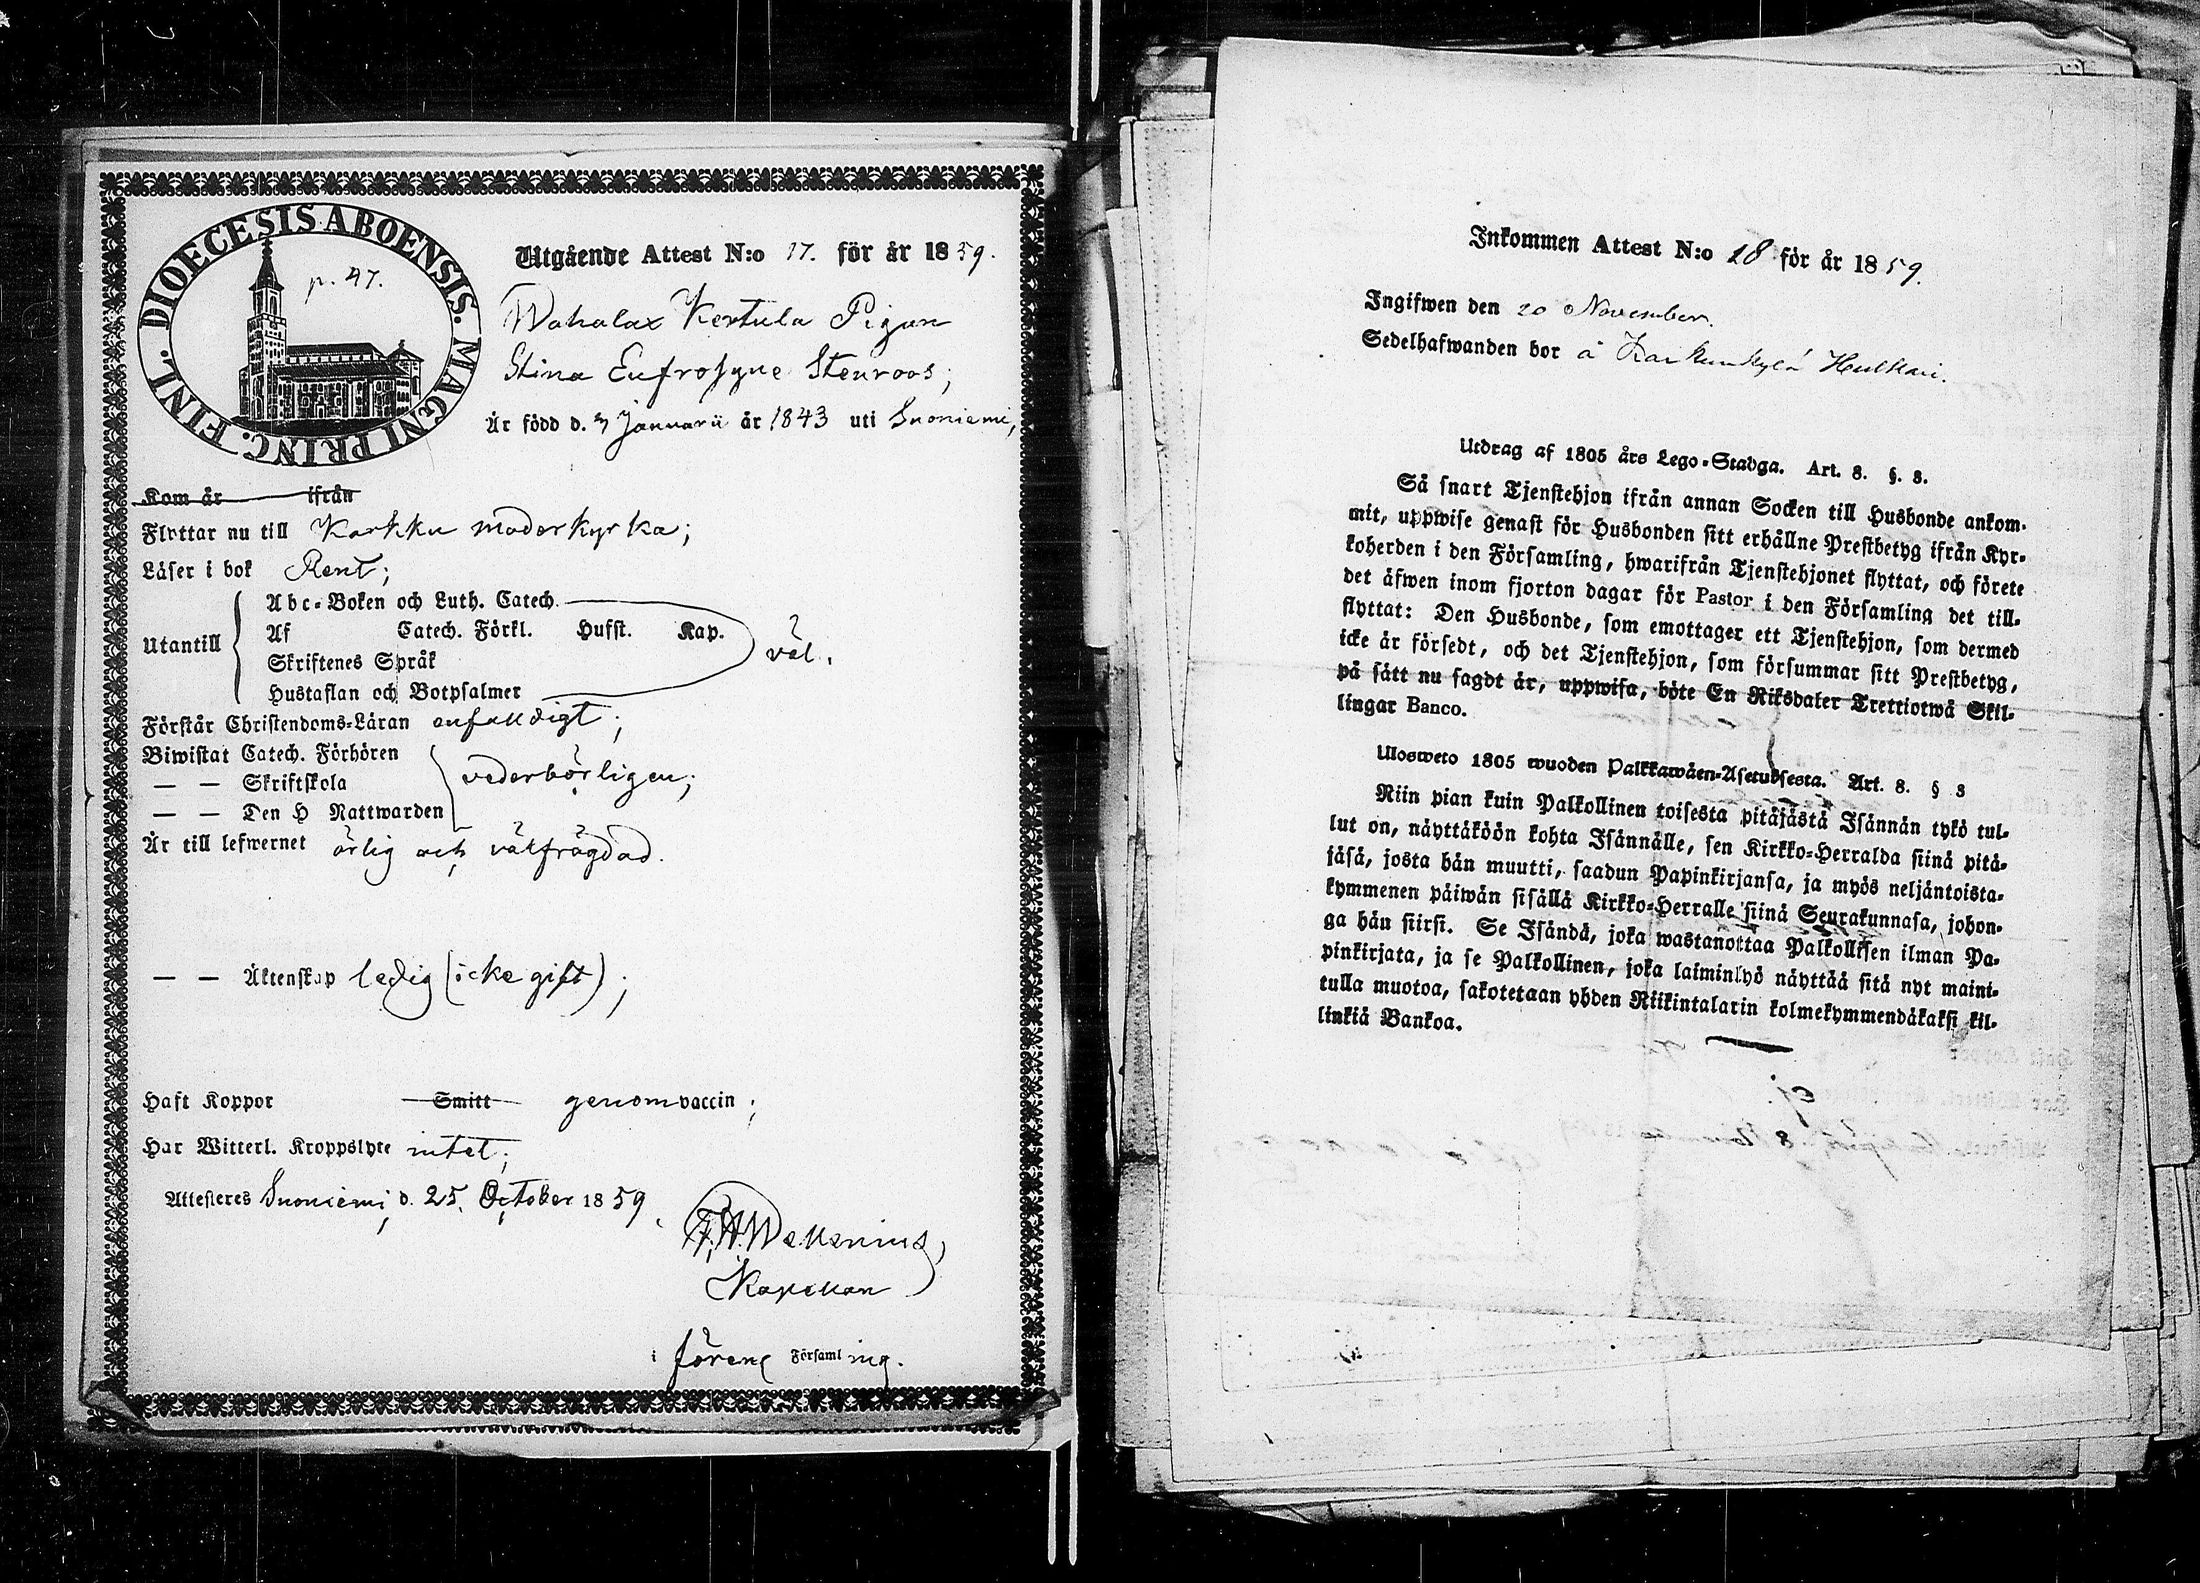 DIOECESIS ABOENSIS. MAGNI PRINC. FINL.
p. 47.
Utgående Attest N:o 17. för år 1859.
Wahalax Kertula Pigan
Stina Eufrosyne Stenroos;
Är född d. 7 Januarii år 1843 uti Suoniemi,
Kom år ifrån
Flyttar nu till Karkku moderkyrka;
Läser i bok Rent;
Utantill
Abc-Boken och Luth. Catech.
Af Catech. Förkl. Hufst. Kap.
Skriftenes Språk
Hustaflan och Botpsalmer
väl.
Förstår Christendoms-Läran enfaldigt;
Biwistat Catech. Förhören
— — Skriftskola
— — Den H Nattwarden
vederbörligen;
Är till lefwernet ärlig och välfrägdad.
— — Äktenskap ledig (icke gift);
Haft Koppor Smitt genom vaccin;
Har Witterl. Kroppslyte intet;
Attesteres Suoniemi, d. 25. October 1859.
Kapellan
i förene Församl ing.
Inkommen Attest N:o 18 för år 1859.
Ingifwen den 20 November.
Sedelhafwanden bor å Karkunkylä Hulkari.
Utdrag af 1805 års Lego-Stadga. Art. 8. §. 3.
Så snart Tjenstehjon ifrån annan Socken till Husbonde ankom-
mit, uppwise genast för Husbonden sitt erhållne Prestbetyg ifrån Kyr-
koherden i den Församling, hwarifrån Tjenstehjonet flyttat, och förete
det äfwen inom fjorton dagar för Pastor i den Församling det till-
flyttat: Den Husbonde, som emottager ett Tjenstehjon, som dermed
icke är försedt, och det Tjenstehjon, som försummar sitt Prestbetyg,
på sätt nu sagdt är, uppwisa, böte En Riksdaler Trettiotwå Skil-
lingar Banco.
Ulosweto 1805 wuoden Palkkawäen-Asetuksesta. Art. 8. § 3
Niin pian kuin Palkollinen toisesta pitäjästä Isännän tykö tul-
lut on, näyttäköön kohta Isännälle, sen Kirkko-Herralda siinä pitä-
jäsä, josta hän muutti, saadun Papinkirjansa, ja myös neljäntoista-
kymmenen päiwän sisällä Kirkko-Herralle siinä Seurakunnasa, johon-
ga hän siirsi. Se Isändä, joka wastanottaa Palkolliksen ilman Pa-
pinkirjata, ja se Palkollinen, joka laiminlyö näyttää sitä nyt maini-
tulla muotoa, sakotetaan yhden Riikintalarin kolmekymmendäkaksi kil-
linkiä Bankoa.